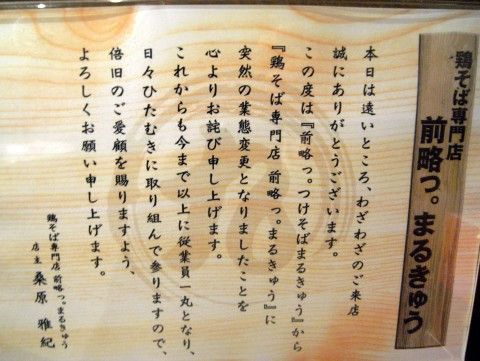 鶏そば専門店
前略っ。まるきゅう
本日は遠いところ、わざわざのご来店
誠にありがとうございます。
この度は『前略っ。つけそばまるきゅう』から
『鶏そば専門店 前略っ。まるきゅう』に
突然の業態変更となりましたことを
心よりお詫び申し上げます。
これからも今まで以上に従業員一丸となり、
日々ひたむきに取り組んで参りますので、
倍旧のご愛顧を賜りますよう、
よろしくお願い申し上げます。
鶏そば専門店 前略っ。まるきゅう
店主 桑原 雅紀